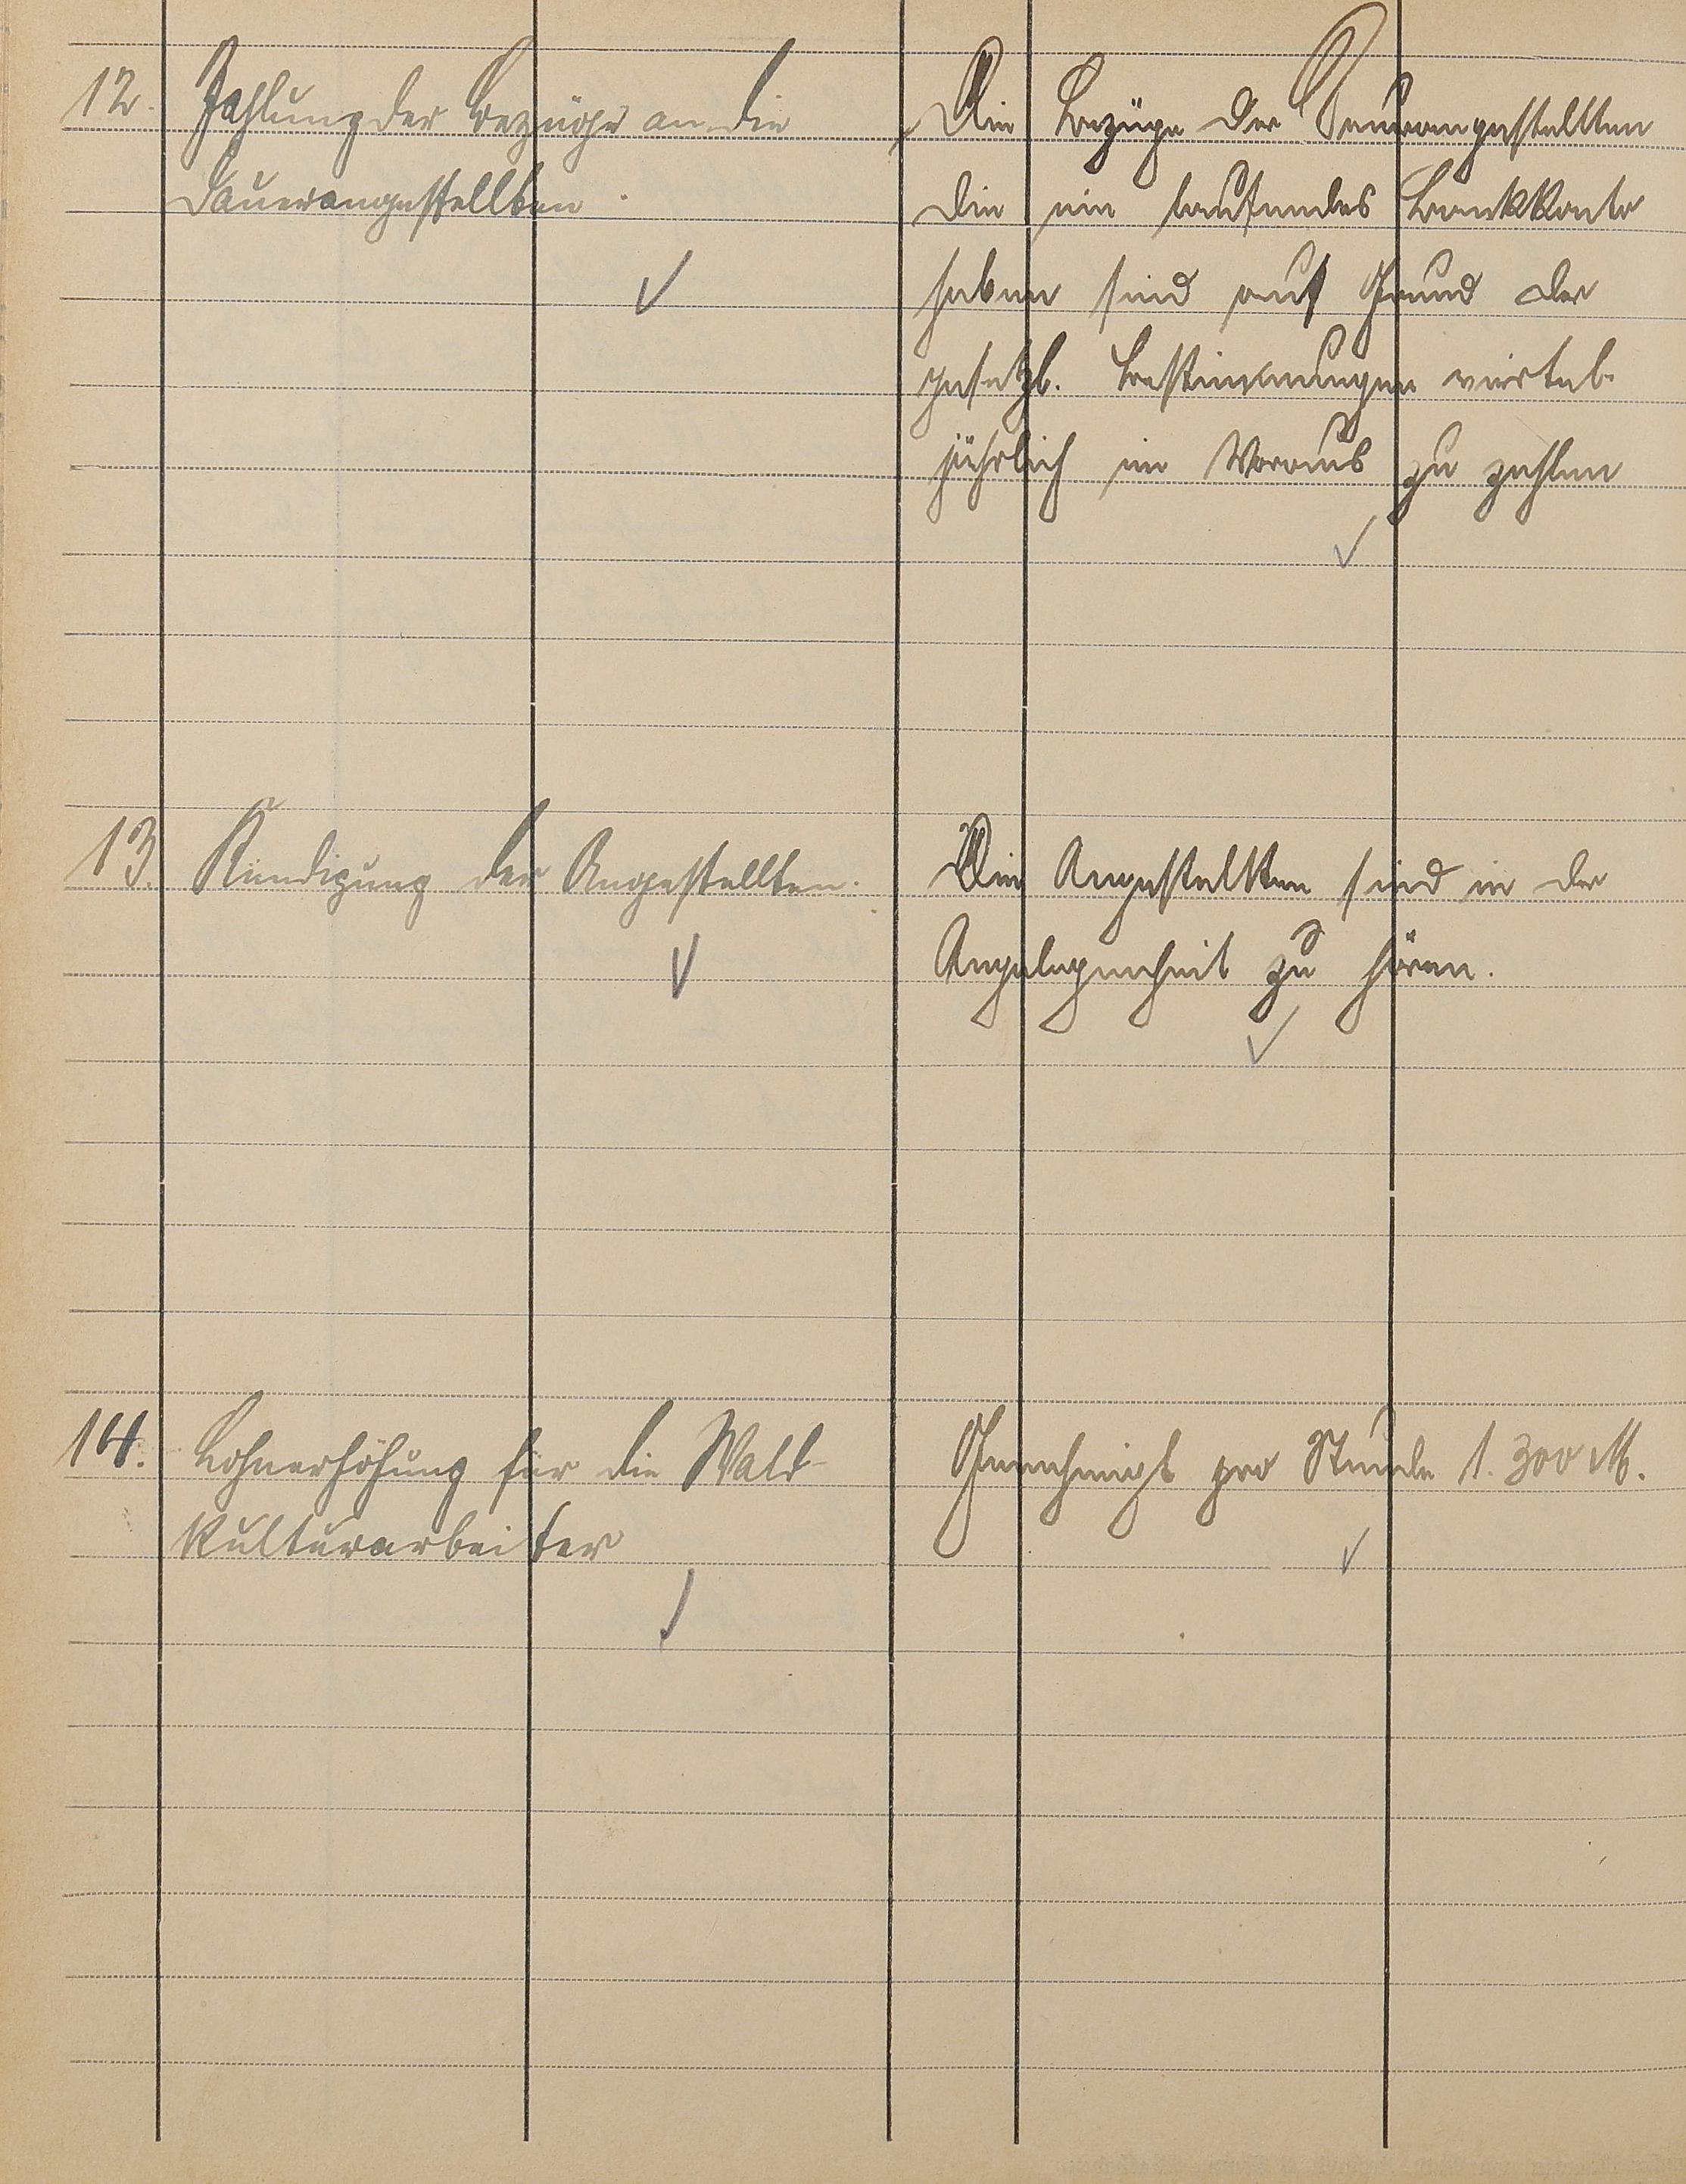 12. Zahlung der Bezüge an die
Dauerangestellten.
Die Bezüge der Dauerangestellten
die ein laufendes Bankkonto
haben sind auf Grund der
gesetzl. Bestimmungen viertel-
jährlich im Voraus zu zahlen
13. Kündigung der Angestellten.
Die Angestellten sind in der
Angelegenheit zu hören.
14. Lohnerhöhung für die Wald-
kulturarbeiter
Genehmigt pro Stunde 1.300 M.